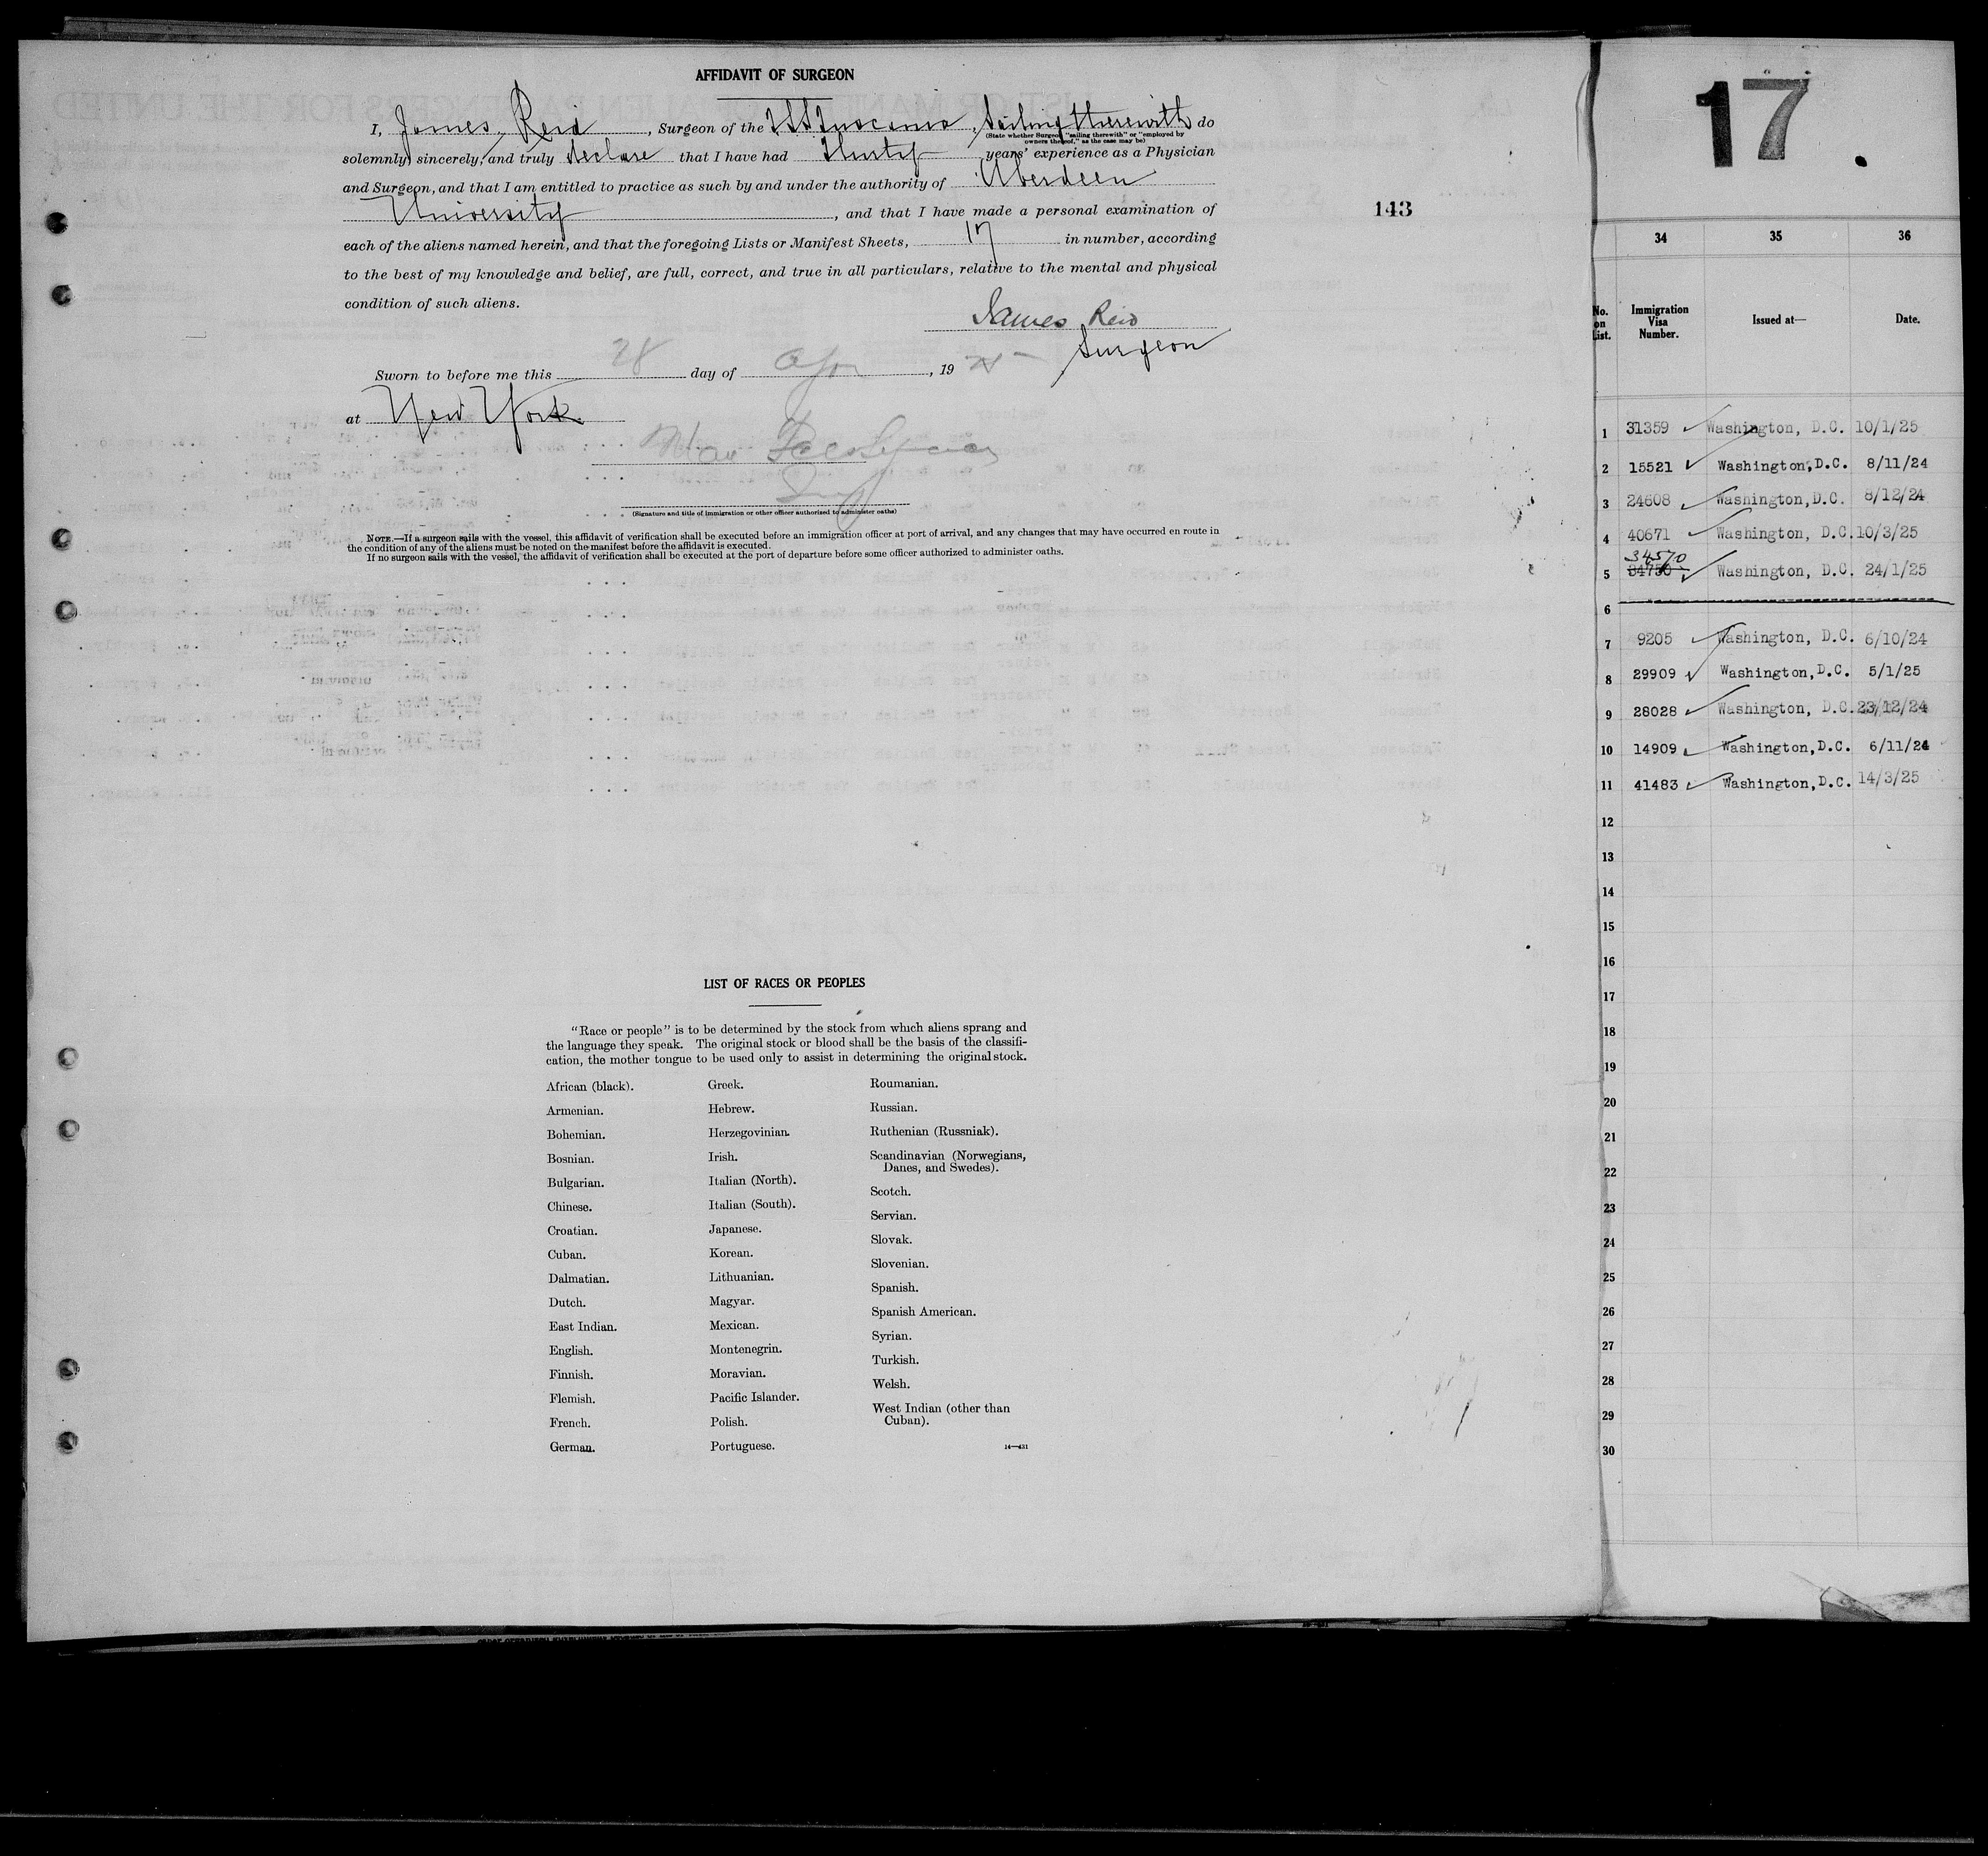 AFFIDAVIT OF SURGEON
I, James Reid, Surgeon of the TSS Tuscania, Sailing therewith do
(State whether Surgeon "sailing therewith" or "employed by owners thereof," as the case may be)
solemnly, sincerely, and truly declare that I have had Thirty years' experience as a Physician
and Surgeon, and that I am entitled to practice as such by and under the authority of Aberdeen
University, and that I have made a personal examination of
each of the aliens named herein, and that the foregoing Lists or Manifest Sheets, 17 in number, according
to the best of my knowledge and belief, are full, correct, and true in all particulars, relative to the mental and physical
condition of such aliens.
James Reid
Surgeon
Sworn to before me this 28 day of Apr, 19
at New York
(Signature and title of immigration or other officer authorized to administer oaths)
NOTE.—If a surgeon sails with the vessel, this affidavit of verification shall be executed before an immigration officer at port of arrival, and any changes that may have occurred en route in
the condition of any of the aliens must be noted on the manifest before the affidavit is executed.
If no surgeon sails with the vessel, the affidavit of verification shall be executed at the port of departure before some officer authorized to administer oaths.
143
LIST OF RACES OR PEOPLES
"Race or people" is to be determined by the stock from which aliens sprang and
the language they speak. The original stock or blood shall be the basis of the classifi-
cation, the mother tongue to be used only to assist in determining the original stock.
African (black).
Armenian.
Bohemian.
Bosnian.
Bulgarian.
Chinese.
Croatian.
Cuban.
Dalmatian.
Dutch.
East Indian.
English.
Finnish.
Flemish.
French.
German.
Greek.
Hebrew.
Herzegovinian.
Irish.
Italian (North).
Italian (South).
Japanese.
Korean.
Lithuanian.
Magyar.
Mexican.
Montenegrin.
Moravian.
Pacific Islander.
Polish.
Portuguese.
Roumanian.
Russian.
Ruthenian (Russniak).
Scandinavian (Norwegians,
Danes, and Swedes).
Scotch.
Servian.
Slovak.
Slovenian.
Spanish.
Spanish American.
Syrian.
Turkish.
Welsh.
West Indian (other than
Cuban).
14—431
17
34 35 36
No. on List. Immigration Visa Number. Issued at— Date.
1 31359 Washington, D.C. 10/1/25
2 15521 Washington, D.C. 8/11/24
3 24608 Washington, D.C. 8/12/24
4 40671 Washington, D.C. 10/3/25
34570
5 34750 Washington, D.C. 24/1/25
6
7 9205 Washington, D.C. 6/10/24
8 29909 Washington, D.C. 5/1/25
9 28028 Washington, D.C. 23/12/24
10 14909 Washington, D.C. 6/11/24
11 41483 Washington, D.C. 14/3/25
12
13
14
15
16
17
18
19
20
21
22
23
24
25
26
27
28
29
30